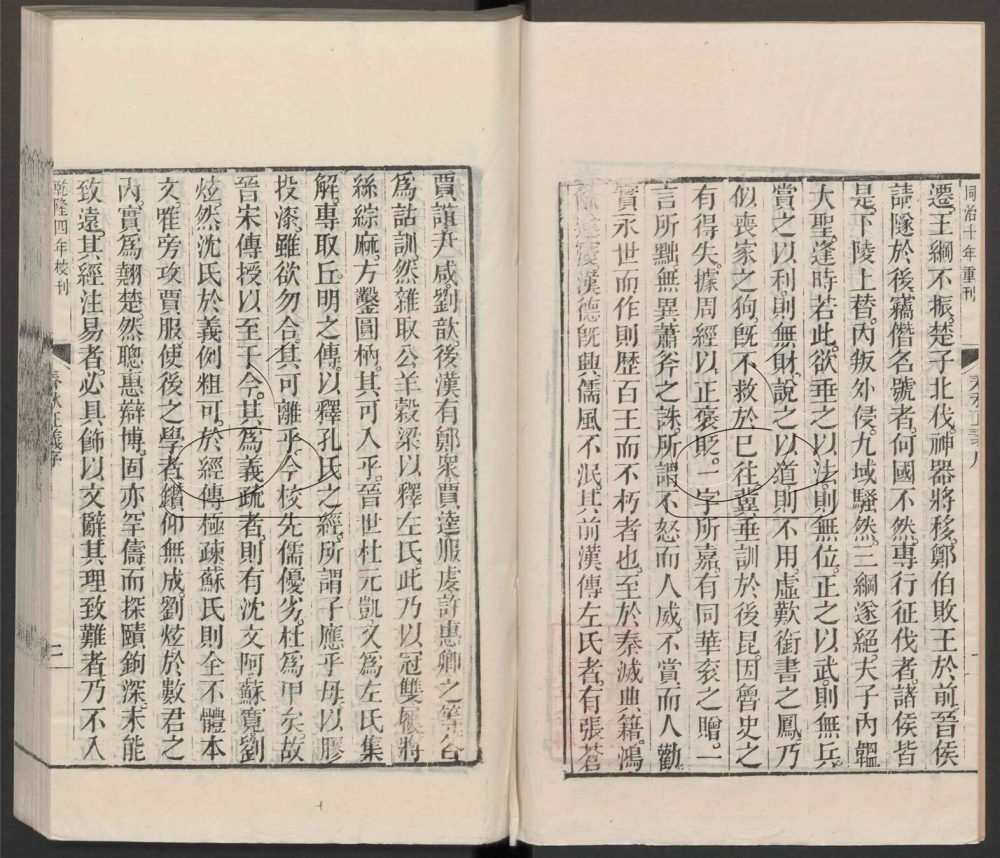 同治十年重刊
遷王綱不振楚子北伐神器將移鄭伯敗王於前晉侯
請隧於後竊僭名號者何國不然專行征伐者諸侯皆
是下陵上替內叛外侵九域騷然三綱遂絕夫子內韞
大聖逢時若此欲垂之以法則無位正之以武則無兵
賞之以利則無財說之以道則不用虛歎銜書之鳳乃
似喪家之狗旣不救於已往冀垂訓於後昆因魯史之
有得失據周經以正褒貶一字所嘉有同華衮之贈一
言所黜無異蕭斧之誅所謂不怒而人威不賞而人勸
實永世而作則歷百王而不朽者也至於秦滅典籍鴻
猷遂寢漢德旣興儒風不泯其前漢傳左氏者有張蒼
賈誼尹咸劉歆後漢有鄭衆賈逵服虔許惠卿之等各
爲詁訓然雜取公羊穀梁以釋左氏此乃以冠雙屨將
絲綜麻方鑿圓枘其可入乎晉世杜元凱又爲左氏集
解專取丘明之傳以釋孔氏之經所謂子應乎母以膠
投漆雖欲勿合其可離乎今校先儒優劣杜爲甲矣故
晉宋傳授以至于今其爲義疏者則有沈文阿蘇寬劉
炫然沈氏於義例粗可於經傳極疎蘇氏則全不體本
文唯旁攻賈服使後之學者鑽仰無成劉炫於數君之
內實爲翹楚然聰惠辯博固亦罕儔而探賾鉤深未能
致遠其經注易者必具飾以文辭其理致難者乃不入
乾隆四年校刊
春秋正義序
二